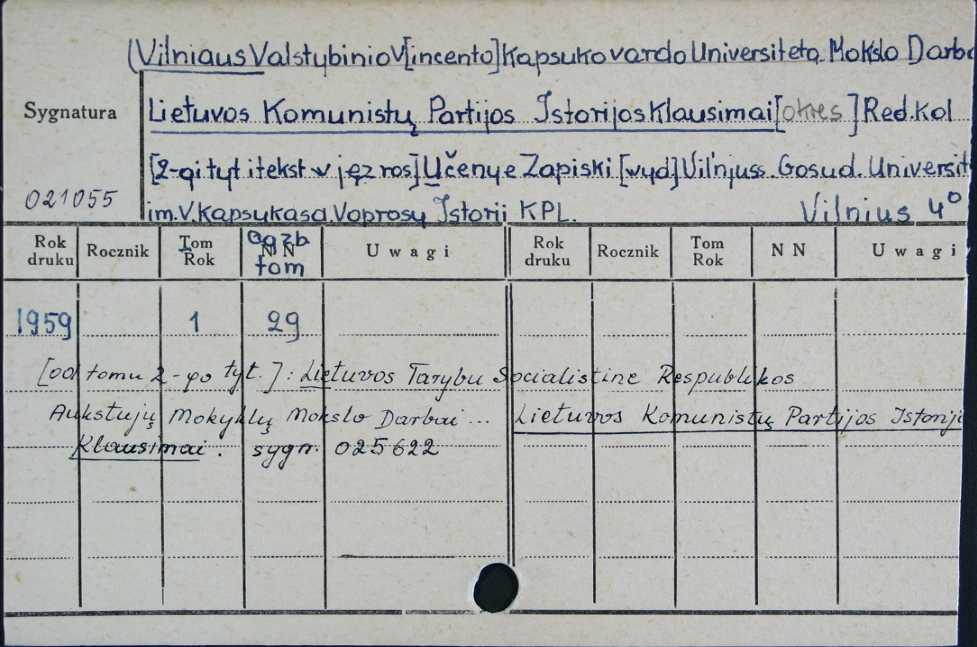 (Vilniaus Valstybinio V[incento] Kapsuko vardo Universiteto Mokslo Darba
Sygnatura
Lietuvos Komunistų Partijos Istorijos Klausimai [okres] Red. Kol
[2-gi tyt i tekst w jęz ros] Učenye Zapiski [wyd] Vil'njuss. Gosud. Universit
021055
im. V. Kapsukasa. Voprosy Istorii KPL. Vilnius 4°
Rok druku Rocznik Tom Rok NN Gązb tom Uwagi Rok druku Rocznik Tom Rok NN Uwagi
1959 1 29
[od tomu 2-go tyt.]: Lietuvos Tarybu Socialistine Respublikos
Aukstujų Mokyklų Mokslo Darbai... Lietuvos Komunistų Partijos Istorij
Klausimai. sygn. 025622